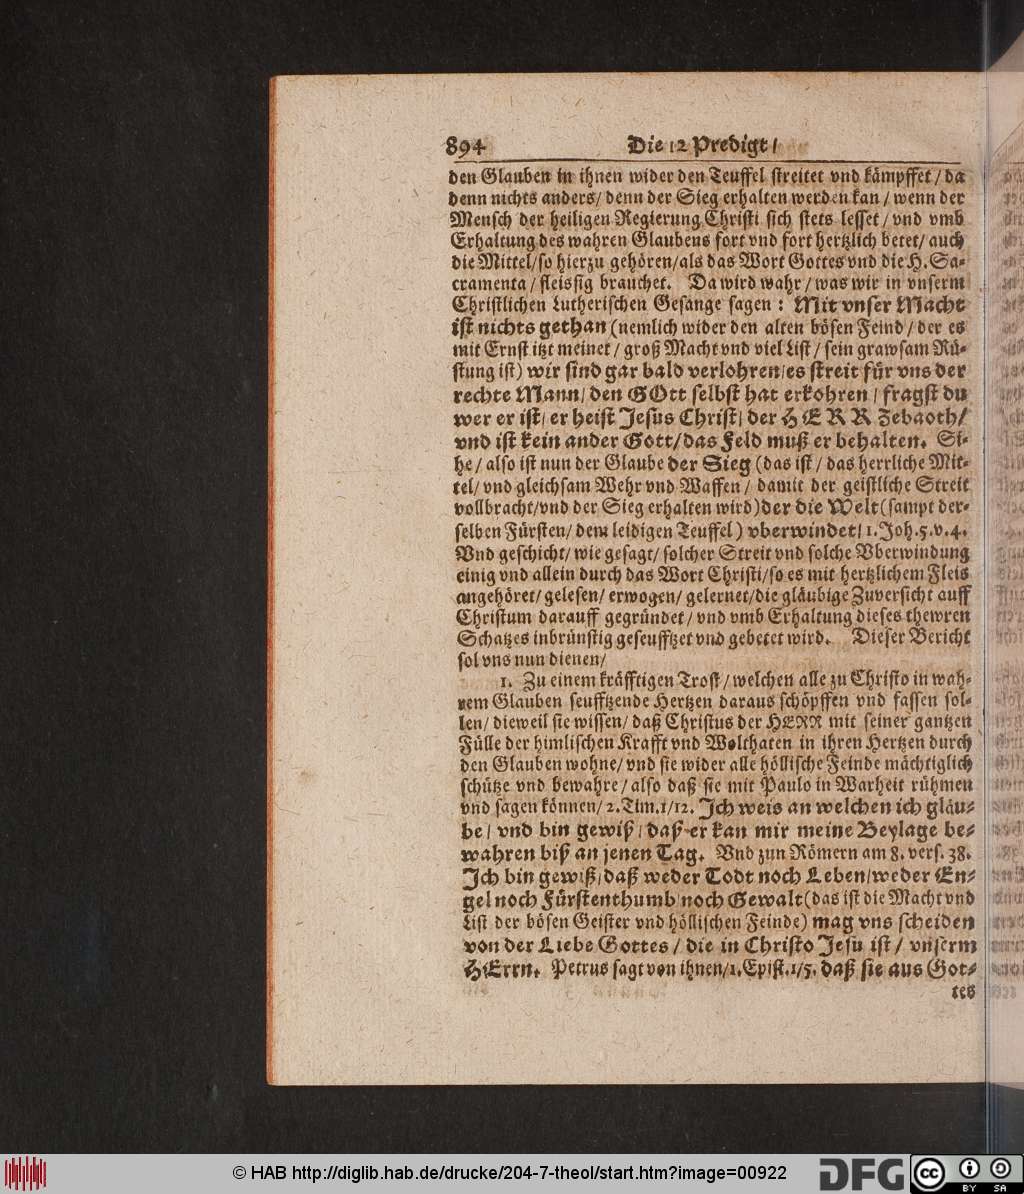 894 Die 12 Predigt /
den Glauben in ihnen wider den Teuffel streitet vnd kämpffet / da
denn nichts anders / denn der Sieg erhalten werden kan / wenn der
Mensch der heiligen Regierung Christi sich stets lesset / vnd vmb
Erhaltung des wahren Glaubens fort vnd fort hertzlich betet / auch
die Mittel / so hierzu gehören / als das Wort Gottes vnd die H. Sa-
cramenta / fleissig brauchet. Da wird wahr / was wir in vnserm
Christlichen Lutherischen Gesange sagen : Mit vnser Macht
ist nichts gethan (nemlich wider den alten bösen Feind / der es
mit Ernst itzt meinet / groß Macht vnd viel List / sein grawsam Rü-
stung ist) wir sind gar bald verlohren / es streit für vns der
rechte Mann / den GOtt selbst hat erkohren / fragst du
wer er ist / er heist Jesus Christ / der HERR Zebaoth /
vnd ist kein ander Gott / das Feld muß er behalten. Si-
he / also ist nun der Glaube der Sieg (das ist / das herrliche Mit-
tel / vnd gleichsam Wehr vnd Waffen / damit der geistliche Streit
vollbracht / vnd der Sieg erhalten wird) der die Welt (sampt der-
selben Fürsten / dem leidigen Teuffel) vberwindet / 1. Joh. 5. v. 4.
Vnd geschicht / wie gesagt / solcher Streit vnd solche Vberwindung
einig vnd allein durch das Wort Christi / so es mit hertzlichem Fleis
angehöret / gelesen / erwogen / gelernet / die gläubige Zuversicht auff
Christum darauff gegründet / vnd vmb Erhaltung dieses thewren
Schatzes inbrünstig geseufftzet vnd gebetet wird. Dieser Bericht
sol vns nun dienen /
1. Zu einem kräfftigen Trost / welchen alle zu Christo in wah-
rem Glauben seufftzende Hertzen daraus schöpffen vnd fassen sol-
len / dieweil sie wissen / daß Christus der HERR mit seiner gantzen
Fülle der himlischen Krafft vnd Wolthaten in ihren Hertzen durch
den Glauben wohne / vnd sie wider alle höllische Feinde mächtiglich
schütze vnd bewahre / also daß sie mit Paulo in Warheit rühmen
vnd sagen können / 2. Tim. 1/12. Jch weis an welchen ich gläu-
be / vnd bin gewiß / daß er kan mir meine Beylage be-
wahren biß an jenen Tag. Vnd zun Römern am 8. vers. 38.
Jch bin gewiß / daß weder Todt noch Leben / weder En-
gel noch Fürstenthumb noch Gewalt (das ist die Macht vnd
List der bösen Geister vnd höllischen Feinde) mag vns scheiden
von der Liebe Gottes / die in Christo Jesu ist / vnserm
HErrn. Petrus sagt von ihnen / 1. Epist. 1/5. daß sie aus Got-
tes
© HAB http://diglib.hab.de/drucke/204-7-theol/start.htm?image=00922 DFG cc BY SA